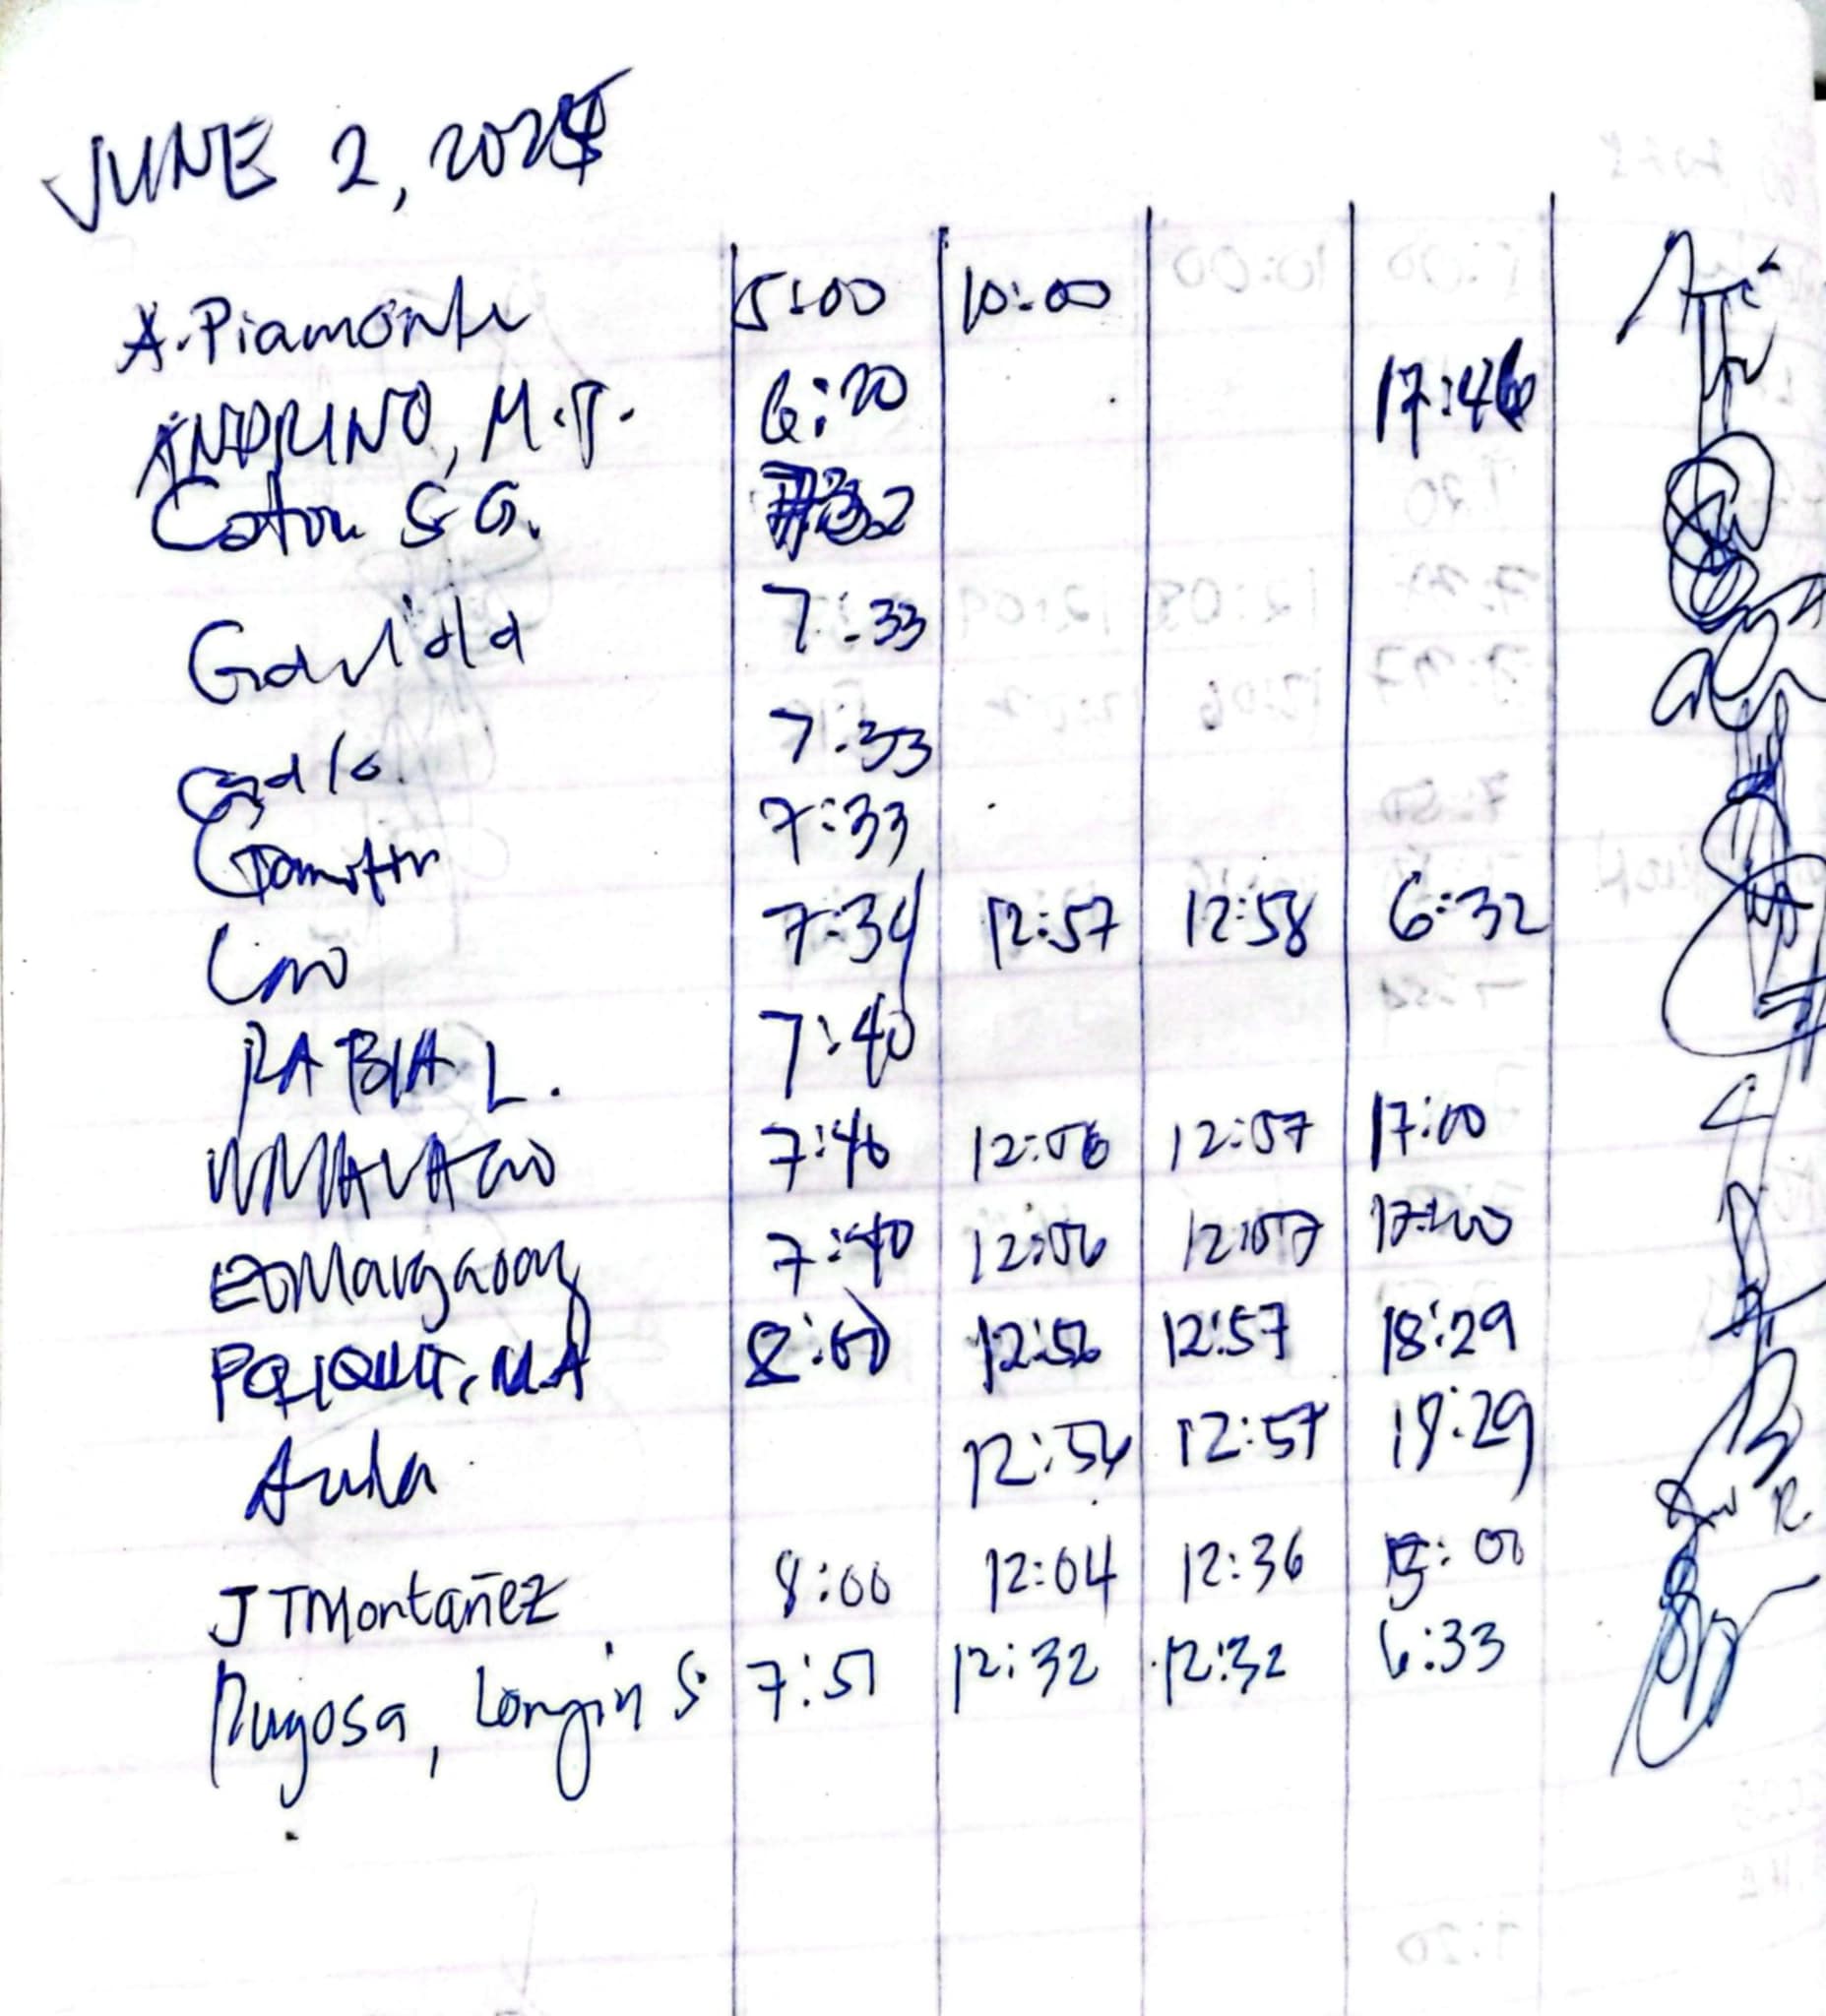 JUNE 2, 2024
A. Piamonte 5:00 10:00
ANDRINO, M.P. 6:20 17:46
Coton S G.
Gaviola 7:33
Galo 7:33
7:33
Cino 7:34 12:57 12:58 6:32
RABIA L. 7:40
7:46 12:56 12:57 17:00
7:40 12:56 12:57 17:00
PQRIQUIT, M.A 8:00 12:56 12:57 18:29
Aula 12:54 12:57 18:29
J T Montañez 8:00 12:04 12:36 5:00
Rugosa, Longin S. 7:51 12:32 12:32 6:33